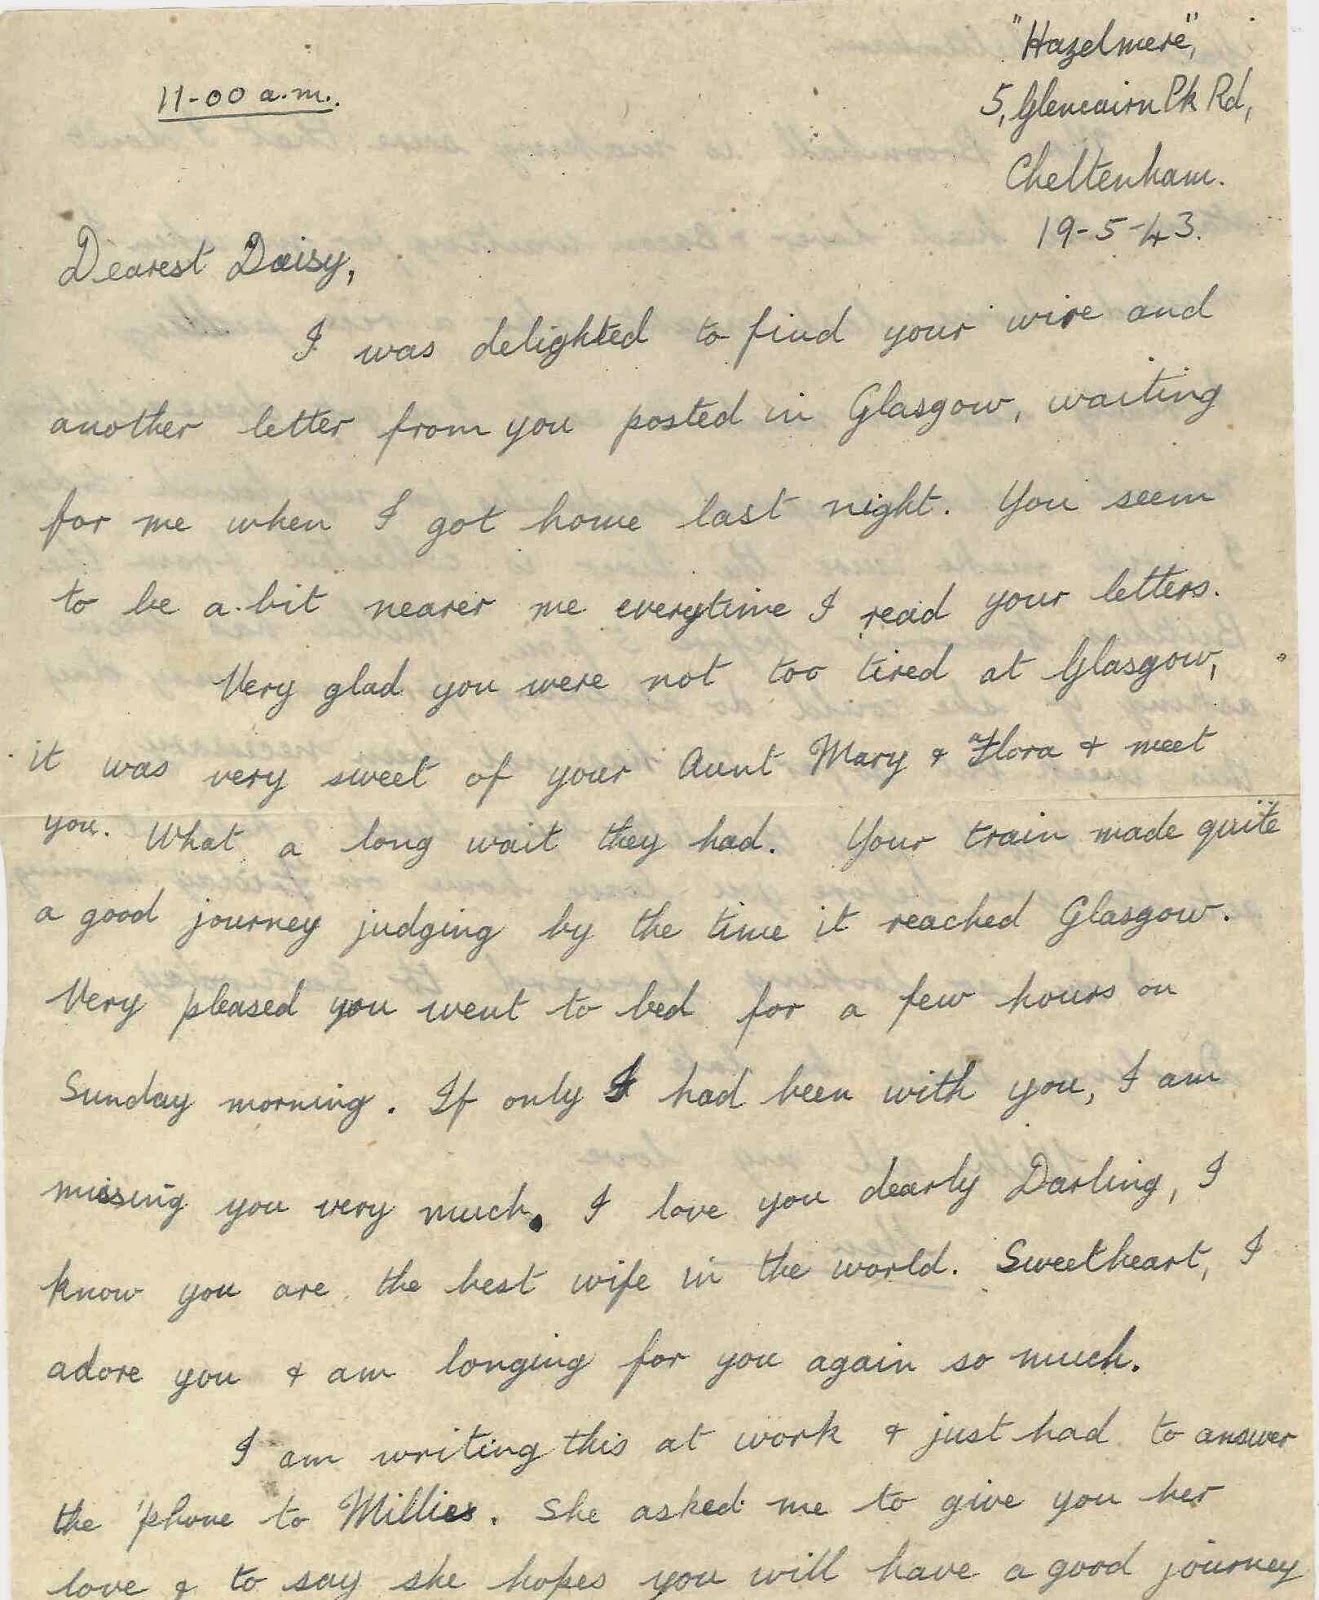 "Hazelmere",
11-00 a.m.
5, Glencairn Pk Rd,
Cheltenham.
19-5-43.
Dearest Daisy,
I was delighted to find your wire and
another letter from you posted in Glasgow, waiting
for me when I got home last night. You seem
to be a bit nearer me everytime I read your letters.
Very glad you were not too tired at Glasgow,
it was very sweet of your Aunt Mary & Flora & meet
you. What a long wait they had. Your train made quite
a good journey judging by the time it reached Glasgow.
Very pleased you went to bed for a few hours on
Sunday morning. If only I had been with you, I am
missing you very much. I love you dearly Darling, I
know you are the best wife in the world. Sweetheart, I
adore you & am longing for you again so much.
I am writing this at work & just had to answer
the 'phone to Millies. She asked me to give you her
love & to say she hopes you will have a good journey